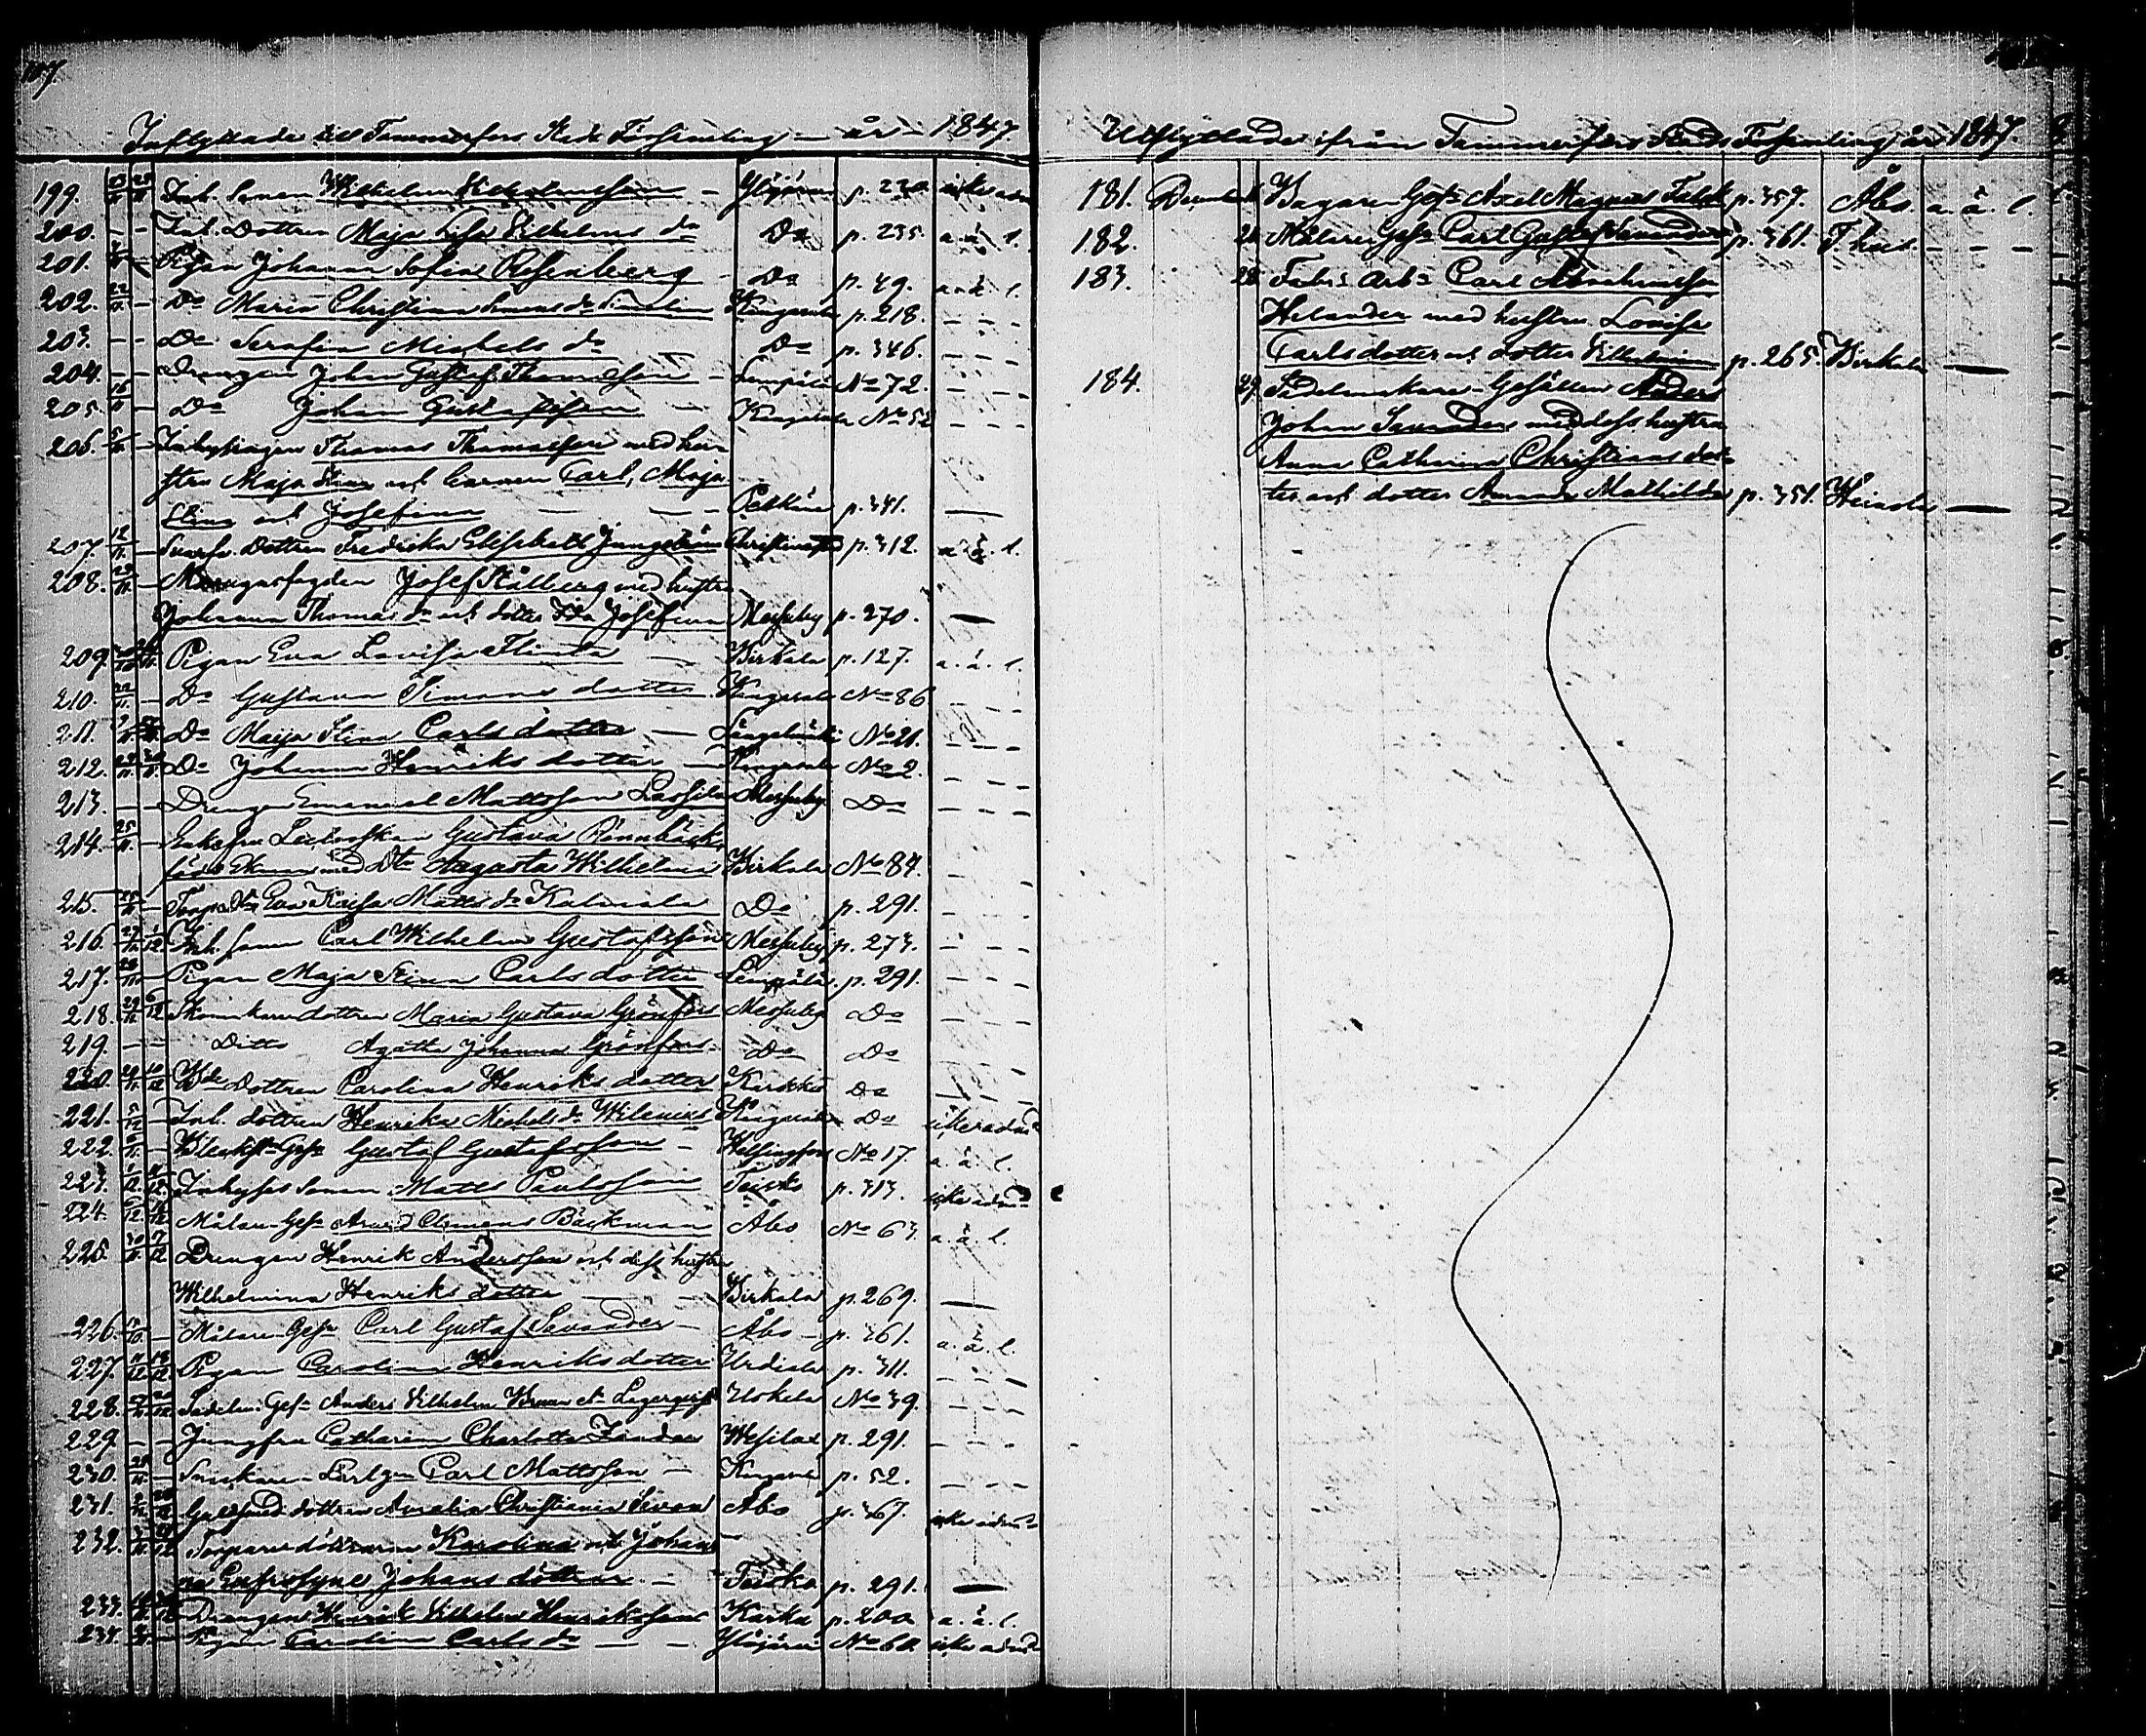 107.
Inflyttade till Tammerfors Stads Församling — år — 1847.
199. Inh. Sonen Wilhelm Wilhelmsson — Ylöjärvi p. 230. icke adm
200. — — Inh. Dottren Maja Lisa Vilhelms dr Do p. 235. a. ä. l.
201. Pigan Johanna Sofia Rosenberg — Do p. 49. a. ä. l.
202. 22/11 — Do Maria Christina Simons dr Kangasala p. 218. — — —
203. — — Do Serafina Michels dr — Do p. 346. — — —
204. — — Drengen Johan Gustaf Thomasson — Lempäälä No 72. — — —
205. 16/11 — Do Johan Gustafsson — Kangasala No 52 — — —
206. — Inhysingen Thomas Thomasson med hu-
stru Maja Stina och barnen Carl, Maja
Stina och Josefina — — — Pelkäne p. 341. —
207. 12/11 — Dottren Fredrika Elisabeth Ljungström Christinestad p. 312. a. ä. l.
208. 29/11 — Josef Stålberg med hustru
Johanna Thomas dr och dotter Ida Josefina Messuby p. 270. —
209. Pigan Eva Lovisa Flinta — Birkala p. 127. a. ä. l.
210. 22/11 — Do Gustava Simons dotter Kangasala No 86 — — —
211. Do Maija Stina Carls dotter — Längelmäki No 21. — — —
212. Do Johanna Henriks dotter — Kangasala No 2. — — —
213. — — Drengen Emanuel Mattsson Lassila Messuby Do — — —
214. 25/11 — Enkefru Gustava Rönnbäck
född Ekman med Dtr Augusta Wilhelmina Birkala No 84. — —
215. 25/11 — Torp. Dtr Eva Kaisa Matts dr Kalmala Do p. 291. — —
216. 27/11 1/12 Inh. sonen Carl Wilhelm Gustafsson Messuby p. 273. — — —
217. 28/11 — Pigan Maja Stina Carlsdotter Lempäälä p. 291. — — —
218. 29/11 6/12 dottren Maria Gustava Grönfors Messuby Do — — —
219. — — Ditto Agatha Johanna Grönfors — Do Do — — —
220. 29/11 10/12 Bde Dottren Carolina Henriks dotter Karkku Do — — —
221. 5/12 — Inh. dottren Henrika Michels dr Wilenius Kangasala Do icke adm
222. — Gustaf Gustafsson — Helsingfors No 17. a. ä. l.
223. Inhyses sonen Matts Paulsson Teisko p. 313. icke adm
224. Målare-Ges. Arvid Clemens Bäckman Åbo No 63. a. ä. l.
225. 30/11 7/12 Drengen Henrik Andersson och dess hustru
Wilhelmina Henriks dotter — — Birkala p. 269. —
226. — Målare-Ges. Carl Gustaf Savander — Åbo — p. 361. a. ä. l.
227. 11/12 18/12 Pigan Carolina Henriks dotter Urdiala p. 311. — — —
228. Sadelm. Ges. Anders Vilhelm Lagerqvist Uskela No 39. — — —
229. — — Jungfru Catharina Charlotta Zander Vesilax p. 291. — — —
230. 28/11 — Snickare-Lärlgn Carl Mattsson — Kangasala p. 52. — — —
231. Gullsmeds dottren Amalia Christiana Levan Åbo p. 367. icke adm
232. Torparedöttrarna Karolina och Johan-
na Eufrosyne Johans döttrar. — Teisko p. 291. —
233. Drengen Henrik Vilhelm Henriksson Karku p. 200 a. ä. l.
234. — Pigan Carolina Carls dr — — Ylöjärvi No 60. icke adm
Utflyttade ifrån Tammerfors Stads Församling år 1847.
181. December Bagare Ges. Axel Magnus Falck p. 357. Åbo. a. ä. l.
182. Målare Ges. Carl Gustaf Savander p. 361. Thus — — —
183. 28 Fabr. Arb. Carl Abrahamsson
Helander med hustru Lovisa
Carlsdotter och dotter Vilhelmina p. 265. Birkala —
184. 29. Sadelmakare-Gesällen Anders
Johan Savander med dess hustru
Anna Catharina Christians dot-
ter och dotter Amanda Mathilda p. 351. Heinola —